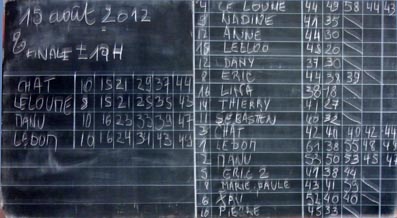 15 août 2012
FINALE ± 19H
CHAT 10 15 21 29 37 44
LELOUNE 8 15 21 25 35 43
MANU 10 16 23 33 39 47
LEBON 10 16 24 31 43 49
4 LE LOUNE 44 49 58 44 43
NADINE 41 35
ANNE 44 30
LELLOO 43 20
DANY 37 30
8 ERIC 44 39
16 LINA 38 18
14 THIERRY 41 27
11 SEBASTIEN 40 32
3 CHAT 42 44
1 LEBON 61 38 55 48 49
2 MANU 55 50 53 45 47
5 ERIC 2 47 38 44
MARIE PAULE 43 41
6 XAV 52 40 40
10 PIECHE 45 33